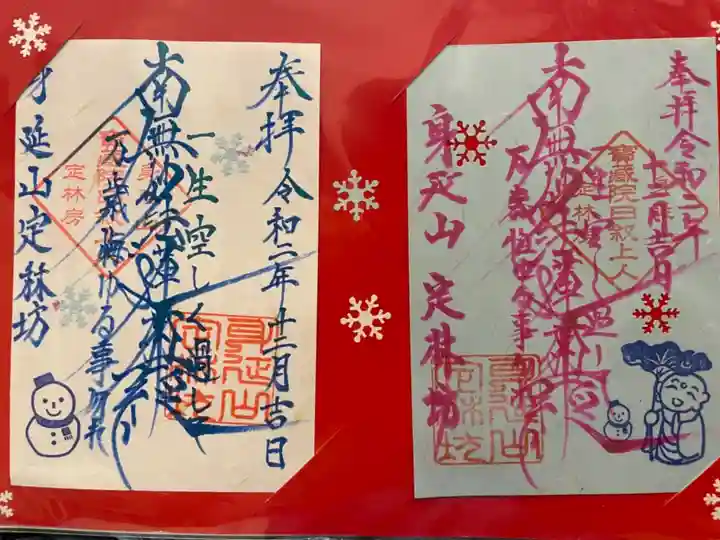 奉拝 令和二年 十二月吉日
一生空しく過して
南無妙法蓮華経
万歳悔ゆる事勿れ
身延山定林坊
定林房
身延山定林坊
奉拝 令和二年
十二月吉日
寶蔵院日叙上人
定林房
南無妙法蓮華経
身延山 定林坊
身延山定林坊